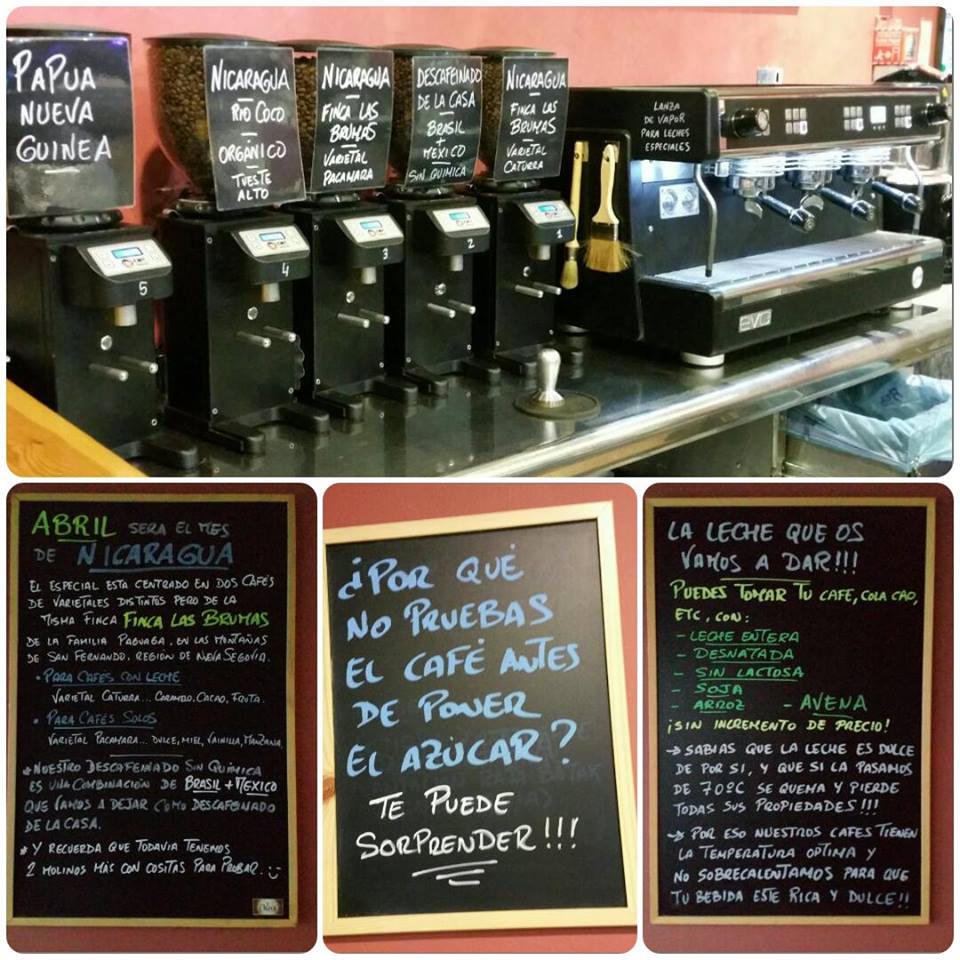 PAPUA
NUEVA
GUINEA
NICARAGUA
RIO COCO
ORGÁNICO
TUESTE
ALTO
NICARAGUA
FINCA LAS
BRUMAS
VARIETAL
PACAMARA
DESCAFEINADO
DE LA CASA
BRASIL
+
MEXICO
SIN QUIMICA
NICARAGUA
FINCA LAS
BRUMAS
VARIETAL
CATURRA
LANZA
DE VAPOR
PARA LECHES
ESPECIALES
5
4
3
2
1
EVO
ABRIL SERA EL MES
DE NICARAGUA
EL ESPECIAL ESTA CENTRADO EN DOS CAFÉS
DE VARIETALES DISTINTOS PERO DE LA
MISMA FINCA FINCA LAS BRUMAS
DE LA FAMILIA PAGUAGA. EN LAS MONTAÑAS
DE SAN FERNANDO. REGION DE NUEVA SEGOVIA.
• PARA CAFES CON LECHE
VARIETAL CATURRA... CARAMELO, CACAO, FRUTA.
• PARA CAFÉS SOLOS
VARIETAL PACAMARA... DULCE, MIEL, VAINILLA, MANZANA.
* NUESTRO DESCAFEINADO SIN QUÍMICA
ES UNA COMBINACIÓN DE BRASIL + MEXICO
QUE VAMOS A DEJAR COMO DESCAFEINADO
DE LA CASA.
* Y RECUERDA QUE TODAVIA TENEMOS
2 MOLINOS MÁS CON COSITAS PARA PROBAR. :)
¿POR QUÉ
NO PRUEBAS
EL CAFÉ ANTES
DE PONER
EL AZÚCAR?
TE PUEDE
SORPRENDER!!!
LA LECHE QUE OS
VAMOS A DAR!!!
PUEDES TOMAR TU CAFE, COLA CAO,
ETC, CON:
- LECHE ENTERA
- DESNATADA
- SIN LACTOSA
- SOJA
- ARROZ - AVENA
¡SIN INCREMENTO DE PRECIO!
→ SABIAS QUE LA LECHE ES DULCE
DE POR SI, Y QUE SI LA PASAMOS
DE 70ºC SE QUEMA Y PIERDE
TODAS SUS PROPIEDADES!!!
→ POR ESO NUESTROS CAFES TIENEN
LA TEMPERATURA OPTIMA Y
NO SOBRECALENTAMOS PARA QUE
TU BEBIDA ESTE RICA Y DULCE!!